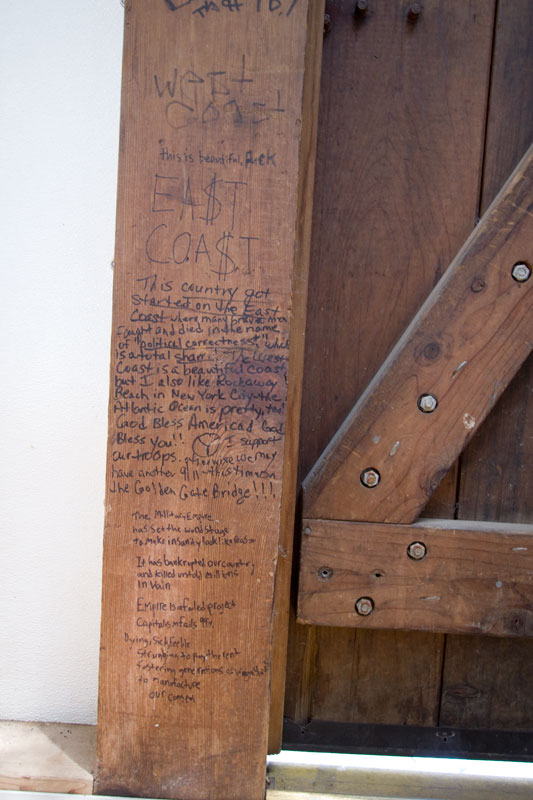 West
Coast
this is beautiful.
EA$T
COA$T
This country got
started on the East
Coast where many brave men
fought and died in the name
of "political correctness," which
is a total sham. The West
Coast is a beautiful coast,
but I also like Rockaway
Beach in New York City - the
Atlantic Ocean is pretty, too!
God Bless America & God
Bless you!! I support
our troops. otherwise we may
have another 9/11 - this time on
the Golden Gate Bridge!!!
The Military Empire
has set the world stage
to make insanity look like reason
It has bankrupted our country
and killed untold millions
in vain
Empire is a failed project
Capitalism fails
Dying, Sick, Feeble
Struggling to pay the rent
fostering generations
to manufacture
our consent